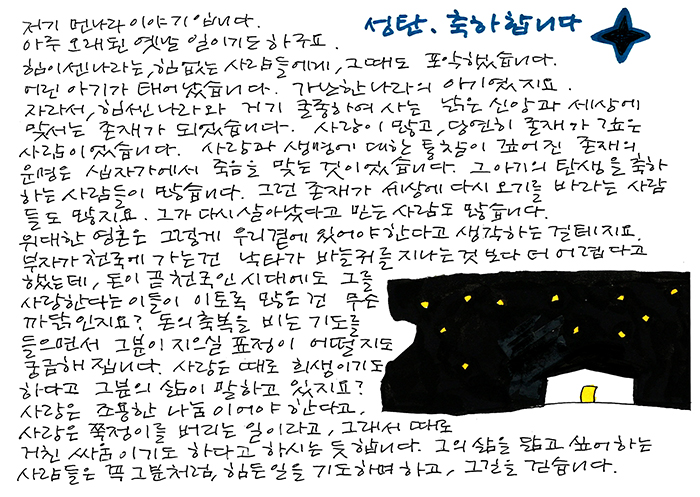 성탄. 축하합니다
저기 먼나라 이야기입니다.
아주 오래된 옛날 일이기도 하구요.
힘이센나라는, 힘없는 사람들에게, 그때도 포악했습니다.
어린 아기가 태어났습니다. 가난한나라의 아기였지요.
자라서, 힘센 나라와 거기 굴종하여 사는 낡은 신앙과 세상에
맞서는 존재가 되었습니다. 사랑이 많고, 당연히 줄재가 깊은
사람이었습니다. 사랑과 생명에 대한 통찰이 깊어진 존재의
운명은 십자가에서 죽음을 맞는 것이었습니다. 그 아기의 탄생을 축하
하는 사람들이 많습니다. 그런 존재가 세상에 다시 오기를 바라는 사람
들도 많지요. 그가 다시살아났다고 믿는 사람도 많습니다.
위대한 영혼은 그렇게 우리곁에 있어야한다고 생각하는 걸테지요.
부자가 천국에 가는건 낙타가 바늘귀를 지나는것 보다 더 어렵다고
했는데, 돈이 곧 천국인 시대에도 그를
사랑한다는 이들이 이토록 많은 건 무슨
까닭인지요? 돈의축복을 비는 기도를
들으면서 그분이 지으실 표정이 어떨지도
궁금해 집니다. 사랑은 때로 희생이기도
하다고 그분의 삶이 말하고 있지요?
사랑은 조용한 나눔이어야 한다고,
사랑은 쭉정이를 버리는 일이라고, 그래서 때로
거친 싸움이기도 하다고 하시는 듯합니다. 그의 삶을 닮고 싶어 하는
사람들은 꼭 그분처럼, 힘든일을 기도하며 하고, 그길을 걷습니다.